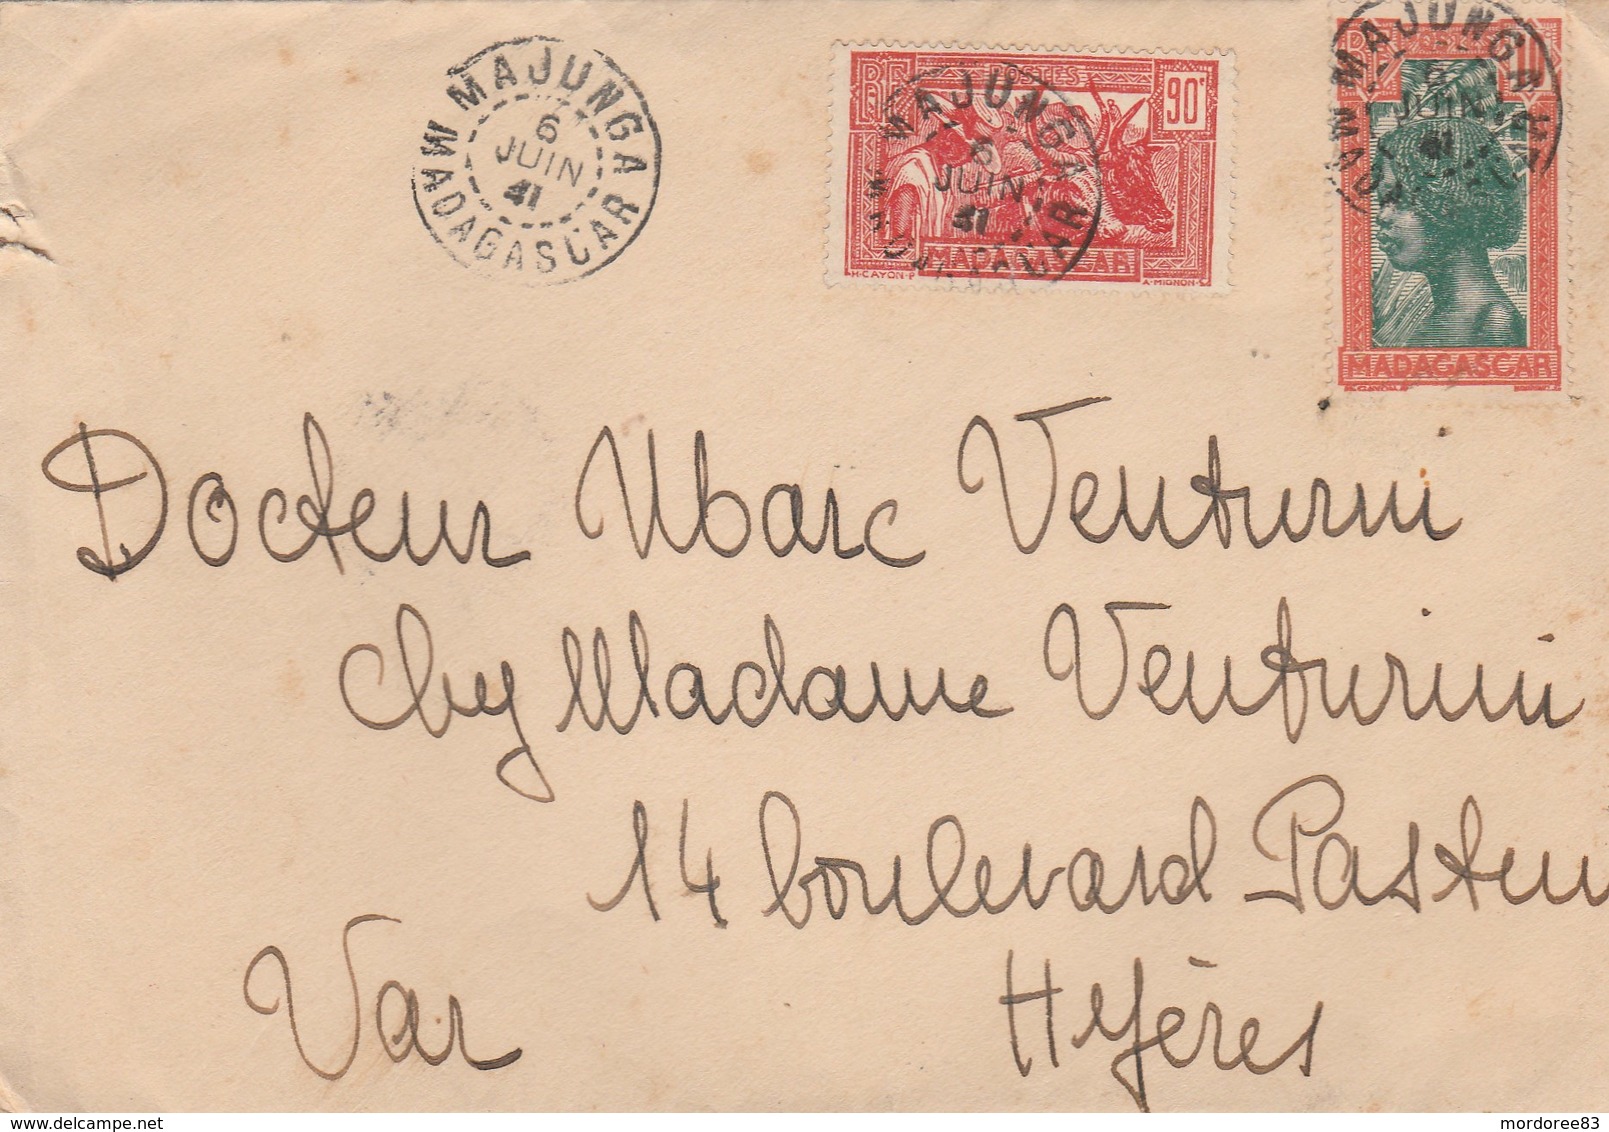 MAJUNGA
6
JUIN
41
MADAGASCAR
RF POSTES 90c
MAJUNGA
6
JUIN
41
MADAGASCAR
H·CAYON·P A·MIGNON·S
MAJUNGA
6
JUIN
41
MADAGASCAR
Docteur Marc Venturini
chez Madame Venturini
14 boulevard Pasteur
Var Hyères
mordoree83
www.delcampe.net